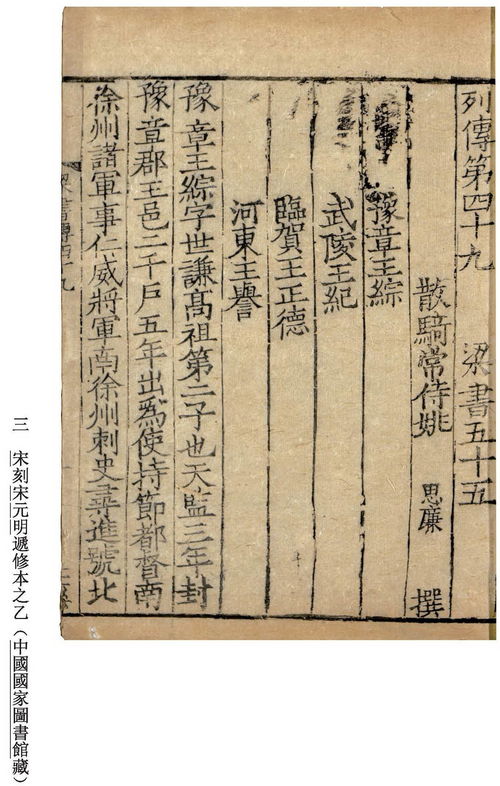 列傳第四十九　梁書五十五
散騎常侍姚　思廉　撰
豫章王綜
武陵王紀
臨賀王正德
河東王譽
豫章王綜字世謙高祖第二子也天監三年封
豫章郡王邑二千戶五年出爲使持節都督南
徐州諸軍事仁威將軍南徐州刺史尋進號北
三　宋刻宋元明遞修本之乙（中國國家圖書館藏）